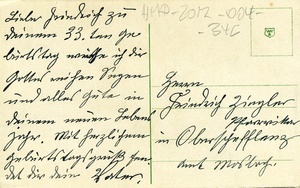 Lieber Friedrich zu
deinem 33. ten Ge
burtstag wünsche ich dir
Gottes reichen Segen
und alles Gute in
deinem neuen Lebens
jahr. Mit herzlichem
Geburtstagsgruß
dein Vater.
HMD-2012-004-
Herrn
Friedrich Ziegler
Pfarrvikar
in Oberschefflenz
Amt Mosbach.